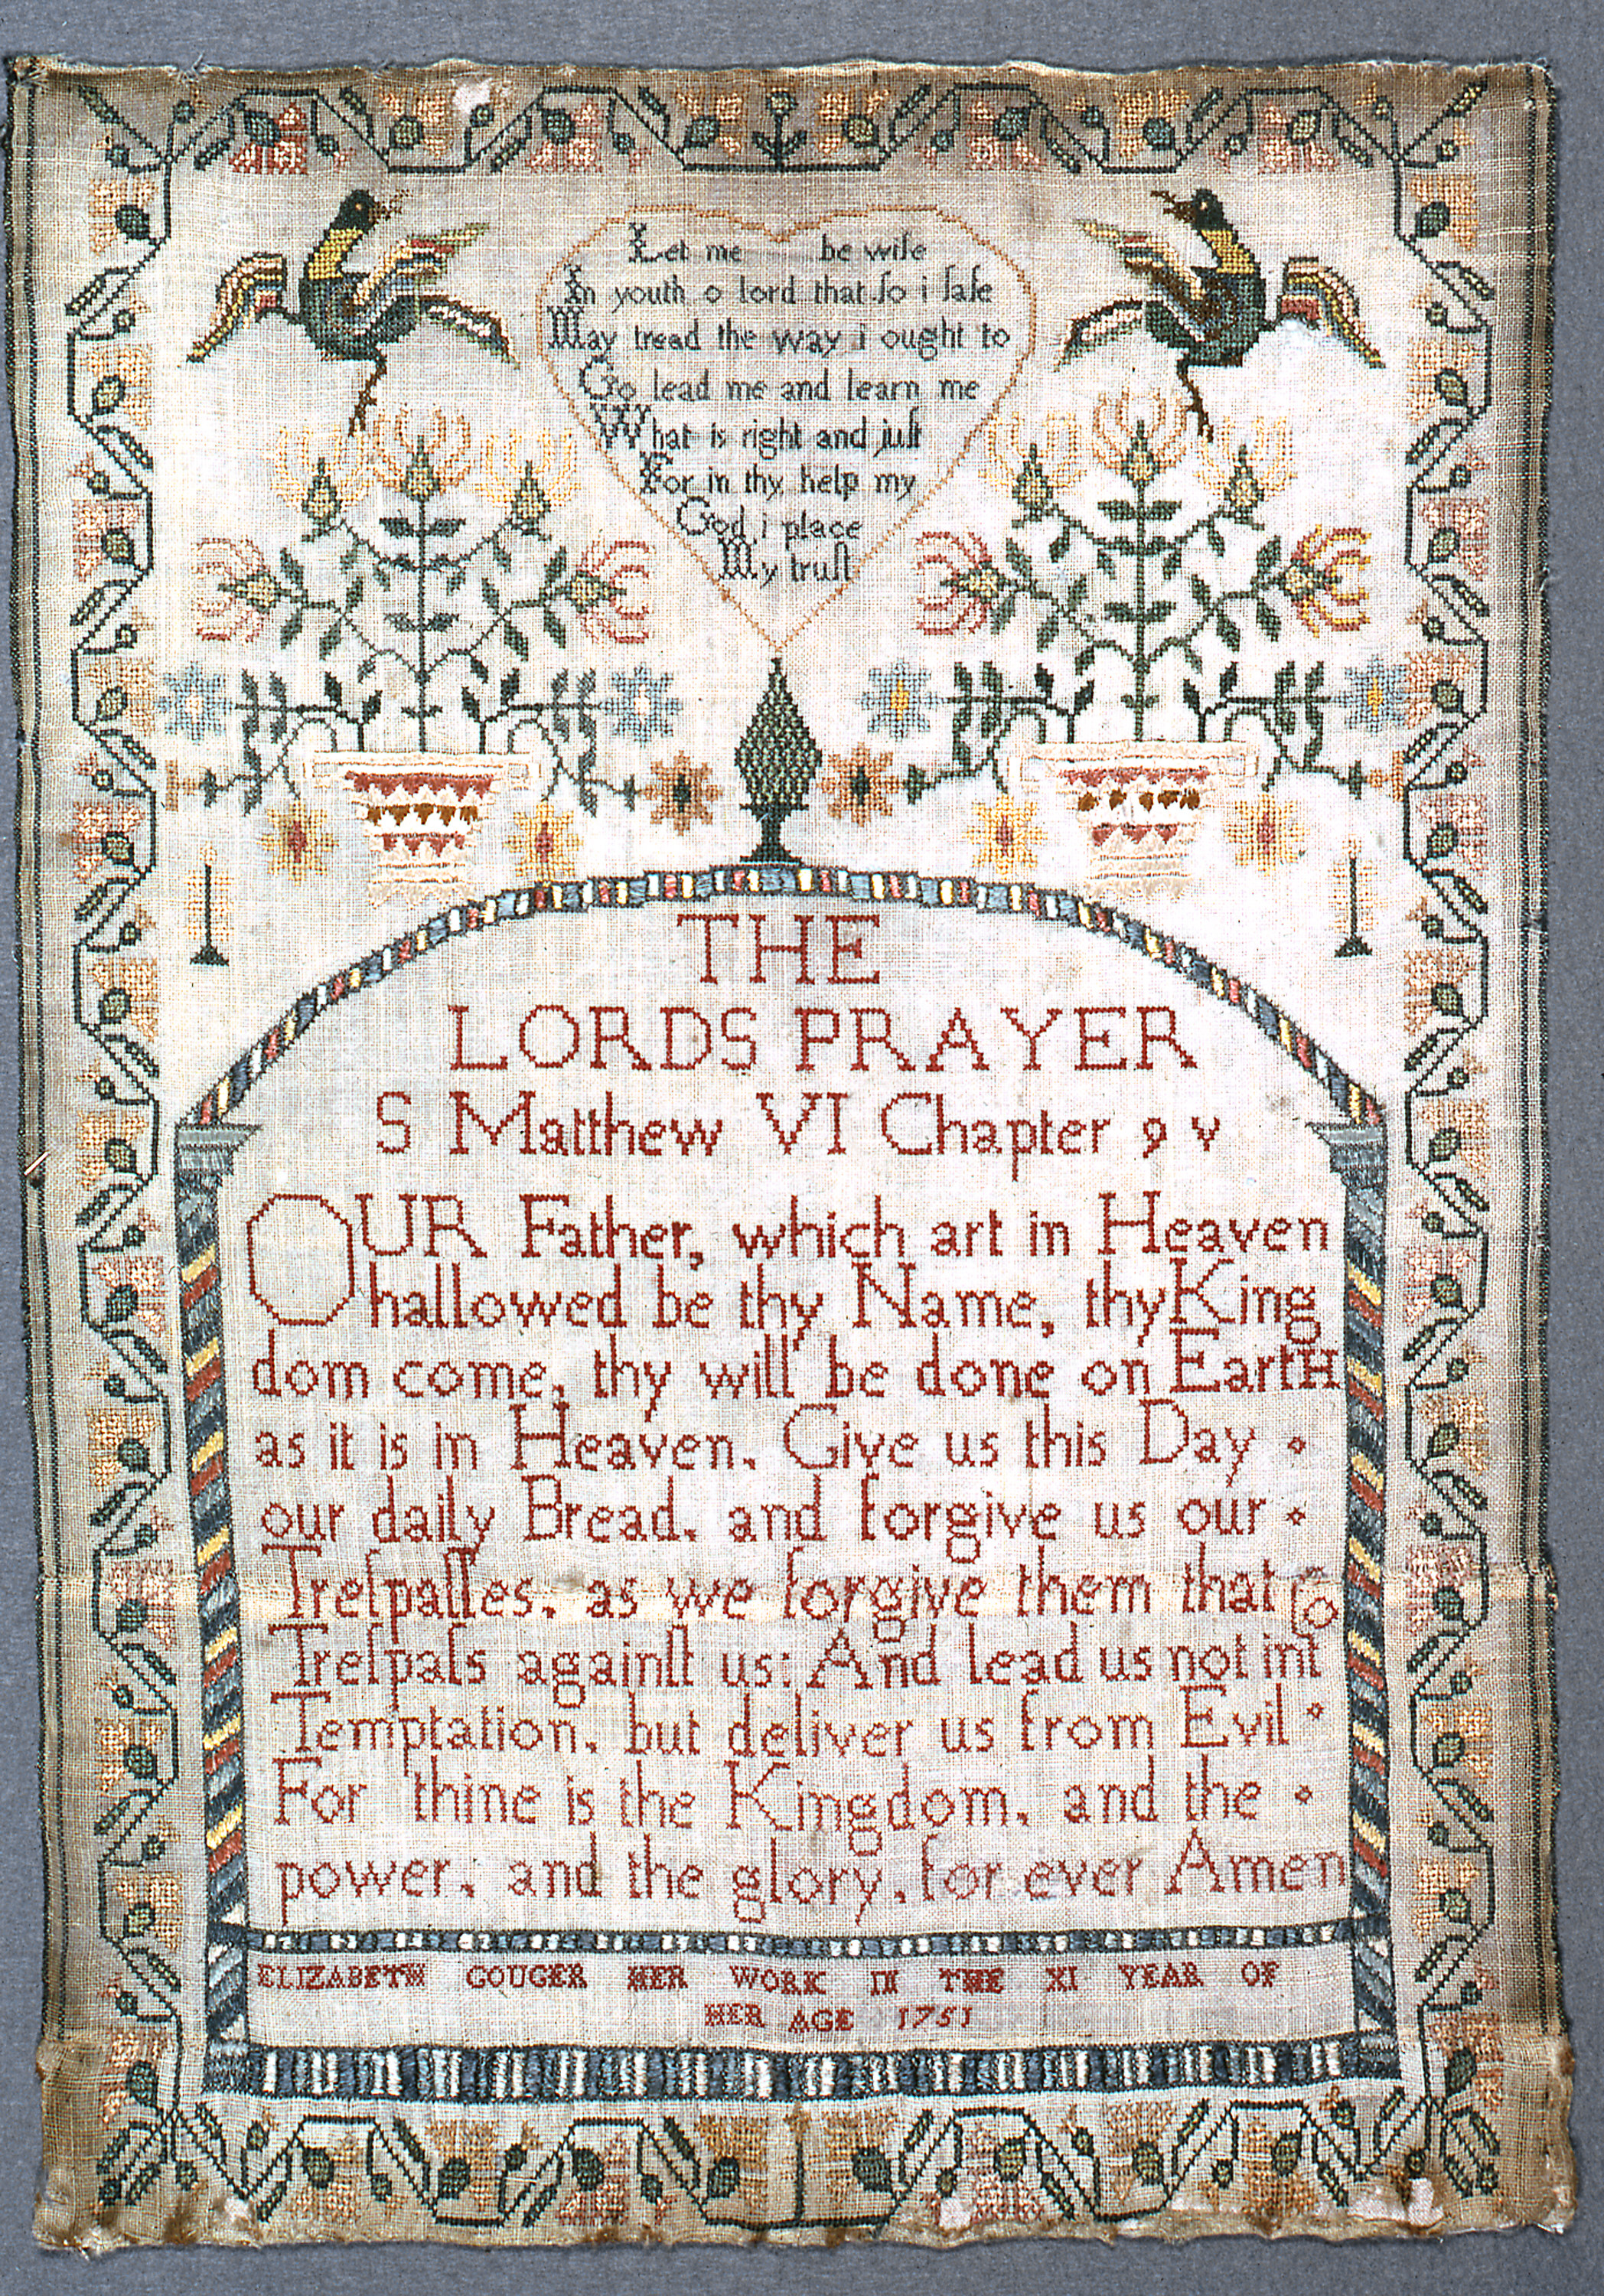 Let me be wiſe
In youth o lord that ſo i ſafe
May tread the way i ought to
Go lead me and learn me
What is right and juſt
For in thy help my
God i place
My truſt
THE
LORDS PRAYER
S Matthew VI Chapter 9 v
OUR Father, which art in Heaven
hallowed be thy Name, thy King
dom come, thy will be done on EartH
as it is in Heaven. Give us this Day
our daily Bread. and forgive us our
Treſpaſſes. as we forgive them that
Treſpaſs againſt us: And lead us not into
Temptation. but deliver us from Evil
For thine is the Kingdom. and the
power. and the glory. for ever Amen
ELIZABETH GOUGER HER WORK IN THE XI YEAR OF
HER AGE 1751